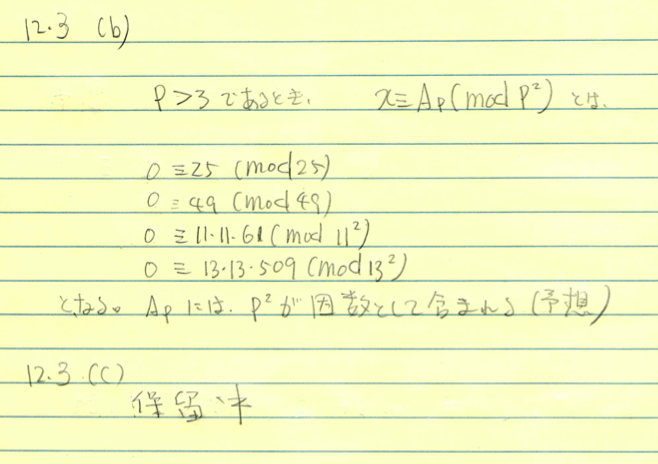 12.3 (b)
P>3 であるとき、 x≡Ap(mod P²) とは、
0≡25 (mod 25)
0≡49 (mod 49)
0≡11·11·61(mod 11²)
0≡13·13·509(mod 13²)
となる。Apには、P²が因数として含まれる(予想)
12.3 (c)
保留中